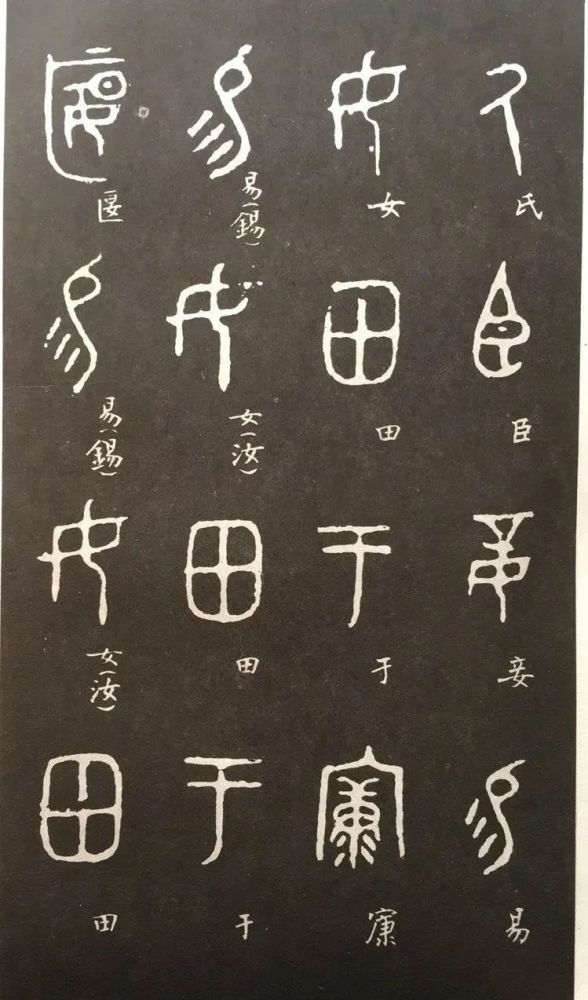 氏臣妾易
女田于㝩
易(錫)女(汝)田于
匽易(錫)女(汝)田